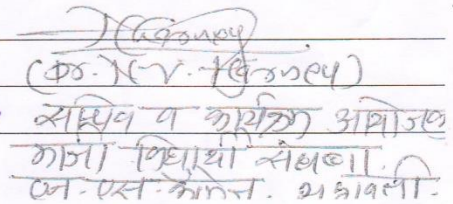 (Dr. N. V. Harney)
सचिव व कार्यक्रम आयोजक
माजी विद्यार्थी संघटना.
एन. एस. कॉलेज. भद्रावती.